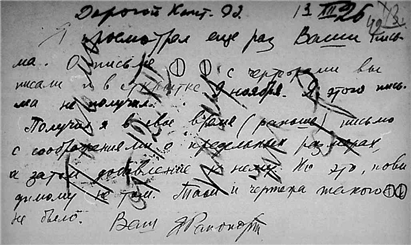 Дорогой Конст. Эд. 13 III 26
Я просмотрел еще раз Ваши пись
ма. О письме ①① с чертежами вы
писали и в открытке 9 ноября. Я этого пись
ма не получил.
Получил я в свое время (раньше) письмо
с соображениями о предельных размерах
и затем добавление к нему. Но это, пови
димому не там. Там и чертежа такого ①①
не было. Ваш Я Рапопорт